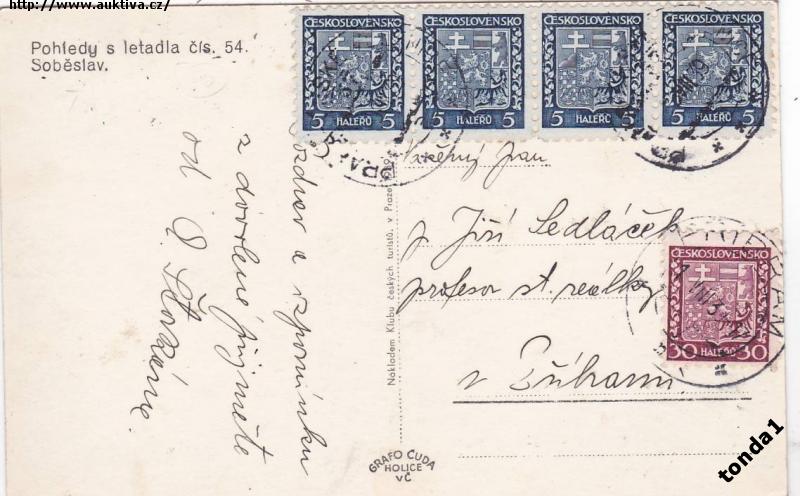 http://www.auktiva.cz/
Pohledy s letadla čís. 54.
Soběslav.
ČESKOSLOVENSKO
5 HALÉŘŮ 5
ČESKOSLOVENSKO
5 HALÉŘŮ 5
ČESKOSLOVENSKO
5 HALÉŘŮ 5
ČESKOSLOVENSKO
5 HALÉŘŮ 5
Pozdrav a vzpomínku
z dovolené přijměte
od
Vážený pan
p. Jiří Sedláček
profesor st. reálky
v Příbrami
ČESKOSLOVENSKO
30 HALÉŘŮ 30
Nákladem Klubu českých turistů, v Praze
GRAFO ČUDA
HOLICE
VČ
tonda1